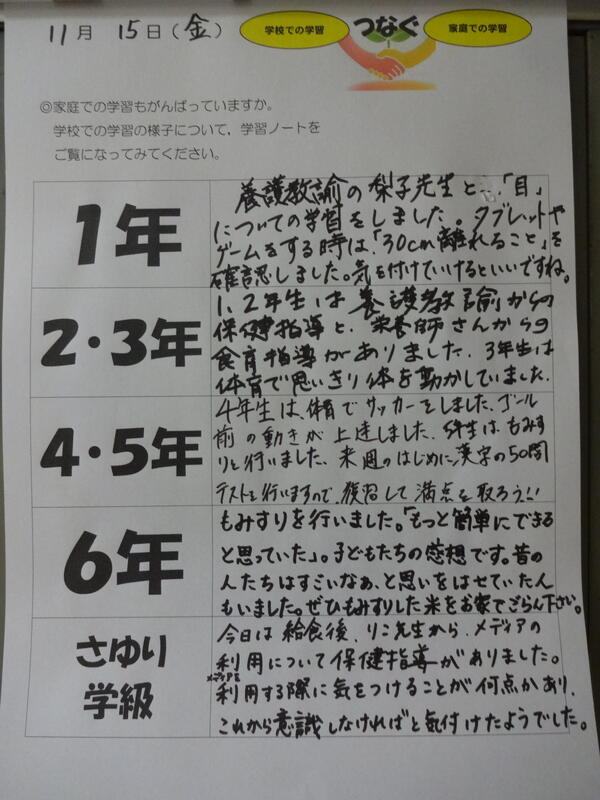 11月 15日(金)
学校での学習 つなぐ 家庭での学習
◎家庭での学習もがんばっていますか。
学校での学習の様子について,学習ノートを
ご覧になってみてください。
1年
養護教諭の梨子先生と…「目」
についての学習をしました。タブレットや
ゲームをする時は、「30cm離れること」を
確認しました。気を付けていけるといいですね。
2・3年
1、2年生は養護教諭からの
保健指導と、栄養師さんからの
食育指導がありました。3年生は
体育で思いきり体を動かしていました。
4・5年
4年生は、体育でサッカーをしました。ゴール
前の動きが上達しました。5年生はもみす
りを行いました。来週のはじめに漢字の50問
テストを行いますので、復習して満点を取ろう!!
6年
もみすりを行いました。「もっと簡単にできる
と思っていた」。子どもたちの感想です。昔の
人たちはすごいなぁ、と思いをはせていたん
もいました。ぜひもみすりした米をお家でごらん下さい。
さゆり
学級
今日は給食後、りこ先生から、メディアの
利用について保健指導がありました。
メディアを
利用する際に気をつけることが何点かあり、
これから意識しなければと気付けたようでした。